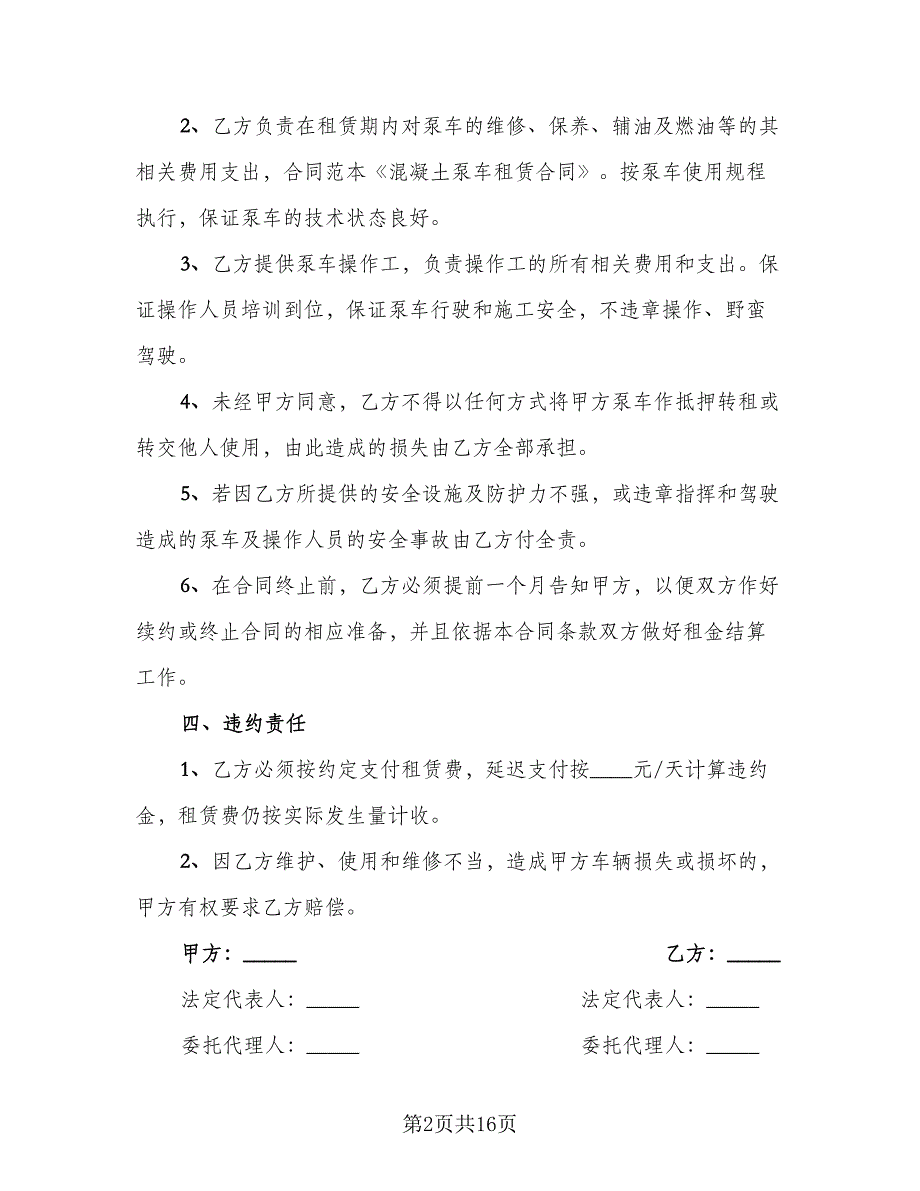 2、乙方负责在租赁期内对泵车的维修、保养、辅油及燃油等的其
相关费用支出，合同范本《混凝土泵车租赁合同》。按泵车使用规程
执行，保证泵车的技术状态良好。
3、乙方提供泵车操作工，负责操作工的所有相关费用和支出。保
证操作人员培训到位，保证泵车行驶和施工安全，不违章操作、野蛮
驾驶。
4、未经甲方同意，乙方不得以任何方式将甲方泵车作抵押转租或
转交他人使用，由此造成的损失由乙方全部承担。
5、若因乙方所提供的安全设施及防护力不强，或违章指挥和驾驶
造成的泵车及操作人员的安全事故由乙方付全责。
6、在合同终止前，乙方必须提前一个月告知甲方，以便双方作好
续约或终止合同的相应准备，并且依据本合同条款双方做好租金结算
工作。
四、违约责任
1、乙方必须按约定支付租赁费，延迟支付按____元/天计算违约
金，租赁费仍按实际发生量计收。
2、因乙方维护、使用和维修不当，造成甲方车辆损失或损坏的，
甲方有权要求乙方赔偿。
甲方：_____ 乙方：_____
法定代表人：_____ 法定代表人：_____
委托代理人：_____ 委托代理人：_____
第2页共16页